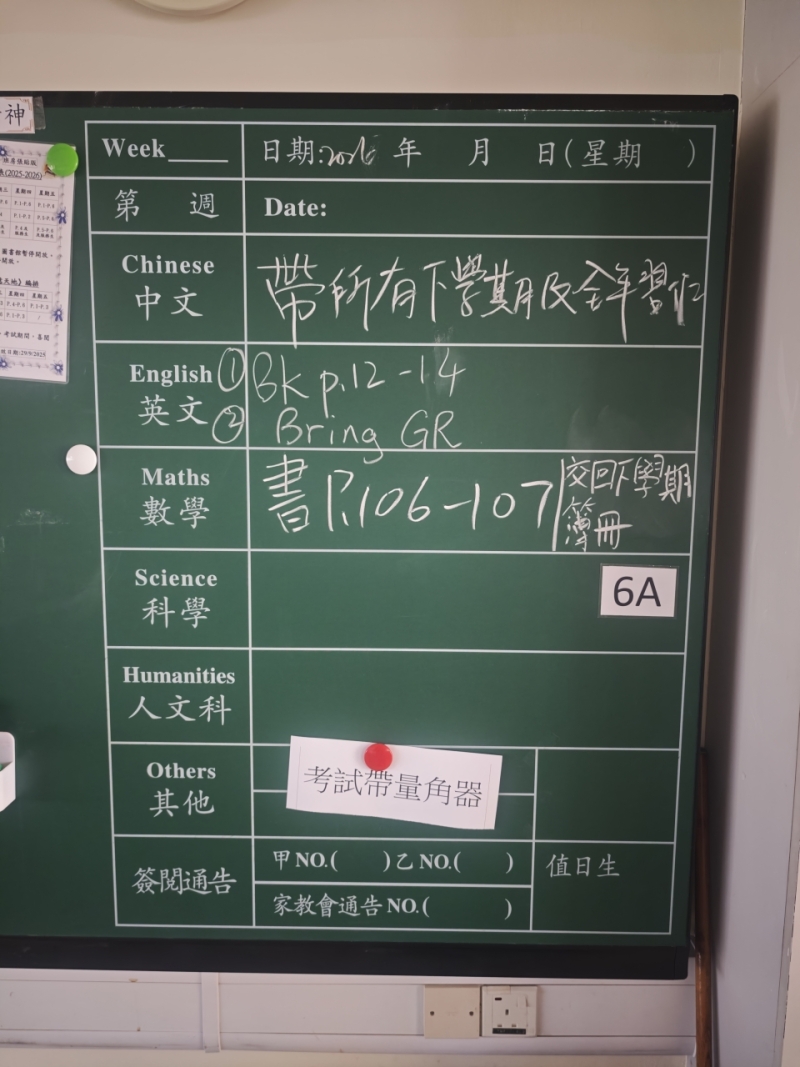 神
(2025-2026)
Week____ 日期:2026 年 月 日(星期 )
第 週 Date:
Chinese
中文
帶所有下學期及全年習作
English
英文
① Bk p.12-14
② Bring GR
Maths
數學
書P.106-107
交回下學期
簿冊
Science
科學
6A
Humanities
人文科
Others
其他
考試帶量角器
簽閱通告
甲NO.( )乙NO.( )
家教會通告NO.( )
值日生